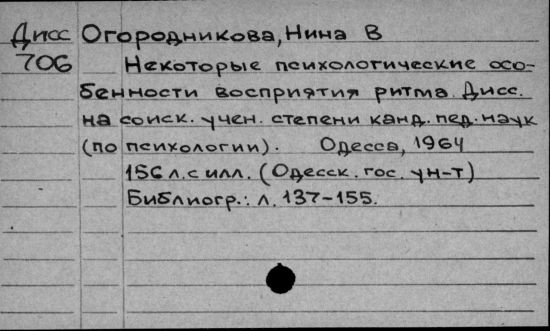 Дисс Огородникова, Нина В
706 Некоторые психологические осо-
бенности восприятия ритма. Дисс.
на соиск. учен. степени канд. пед. наук
(по психологии). Одесса, 1964
156 л. с илл. (Одесск. гос. ун-т)
Библиогр.: л. 137-155.